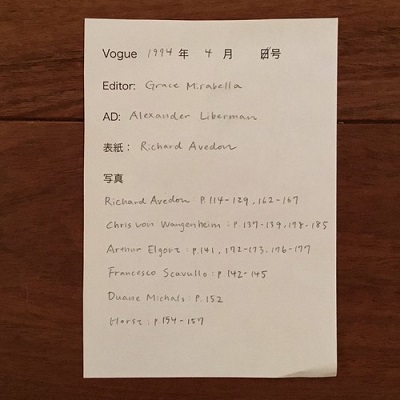 Vogue 1974 年 4 月 日号
Editor: Grace Mirabella
AD: Alexander Liberman
表紙： Richard Avedon
写真
Richard Avedon: P.114-129, 162-167
Chris von Wangenheim: P.137-139, 178-185
Arthur Elgort: P.141, 172-173, 176-177
Francesco Scavullo: P.142-145
Duane Michals: P.152
Horst: P.154-157